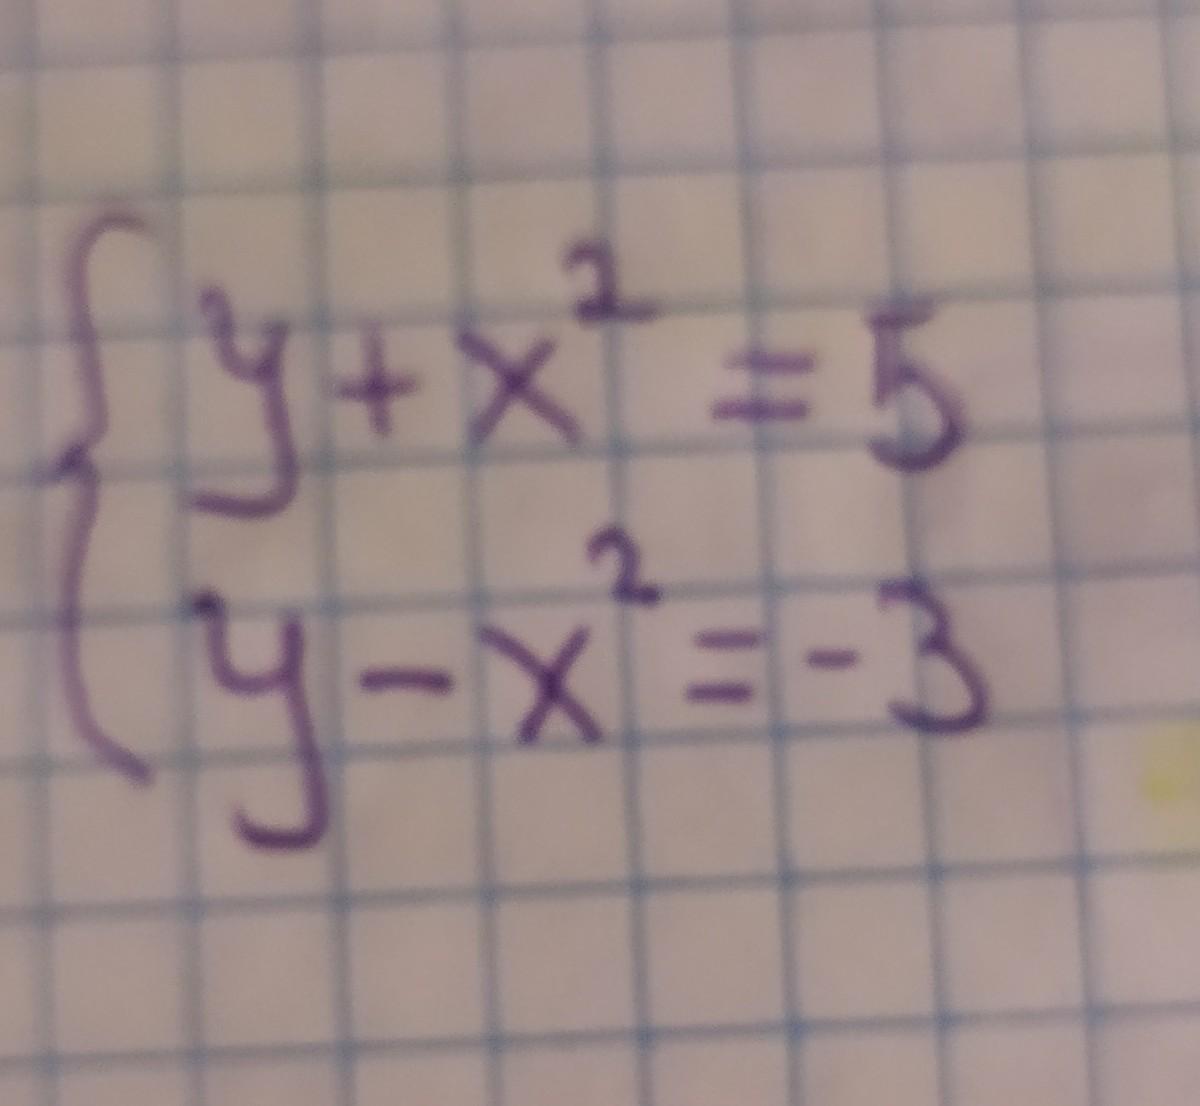 y + x² = 5
y - x² = - 3